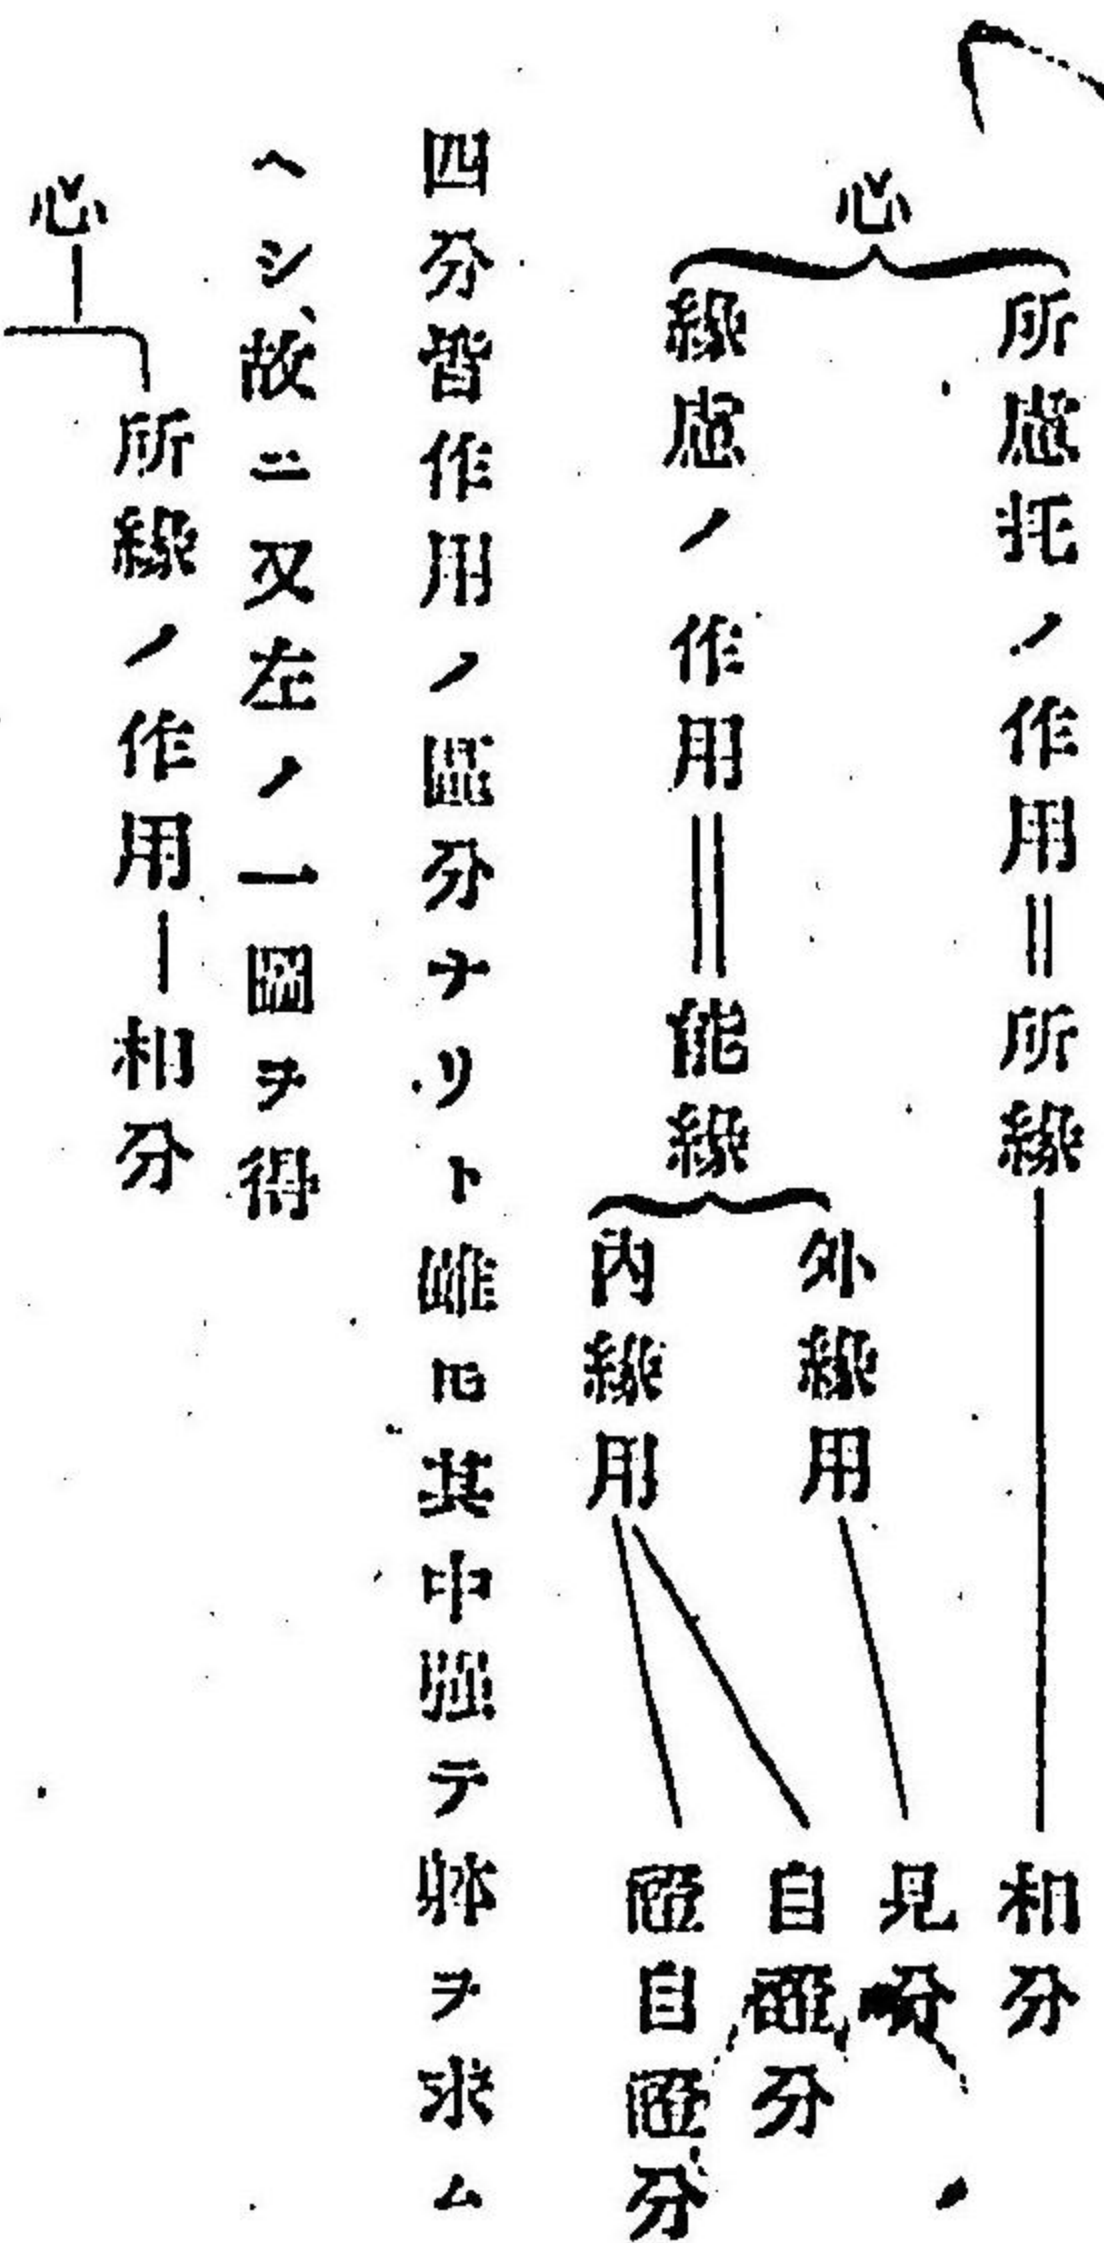 心
所慮托ノ作用＝所縁―相分
緣慮ノ作用＝能緣
外緣用―見分
內緣用
自證分
證自證分
四分皆作用ノ區分ナリト雖𪜈其中强テ躰ヲ求ム
ヘシ、故ニ又左ノ一圖ヲ得
心
所緣ノ作用―相分